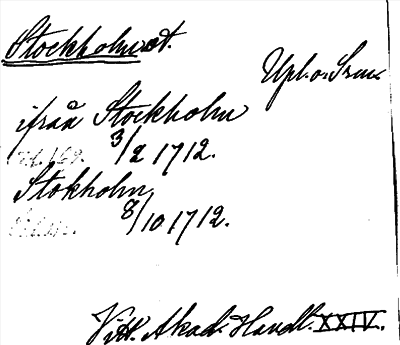 Stockholm st.
Upl. o. Srm.
ifrån Stockholm
3/2 1712.
Stokholm,
8/10 1712.
Vitt. Akad. Handl. XXIV.